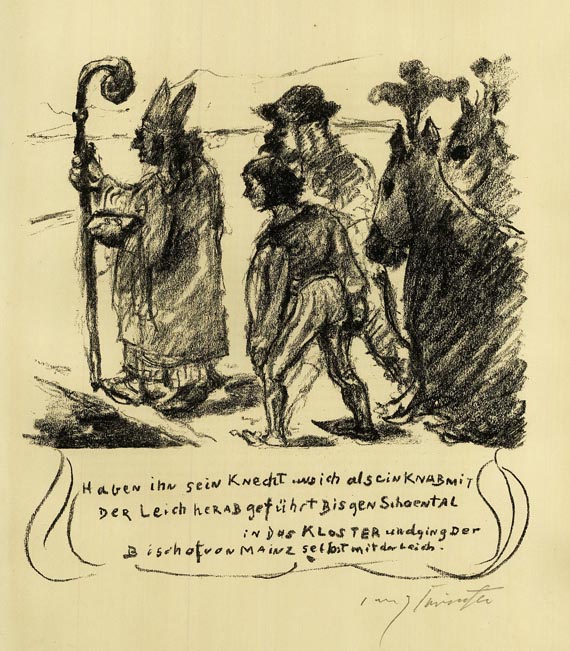 Haben ihn sein Knecht und ich als ein Knab mit
der Leich herab geführt Bis gen Schoental
in das Kloster und ging der
Bischof von Mainz selbst mit der Leich.